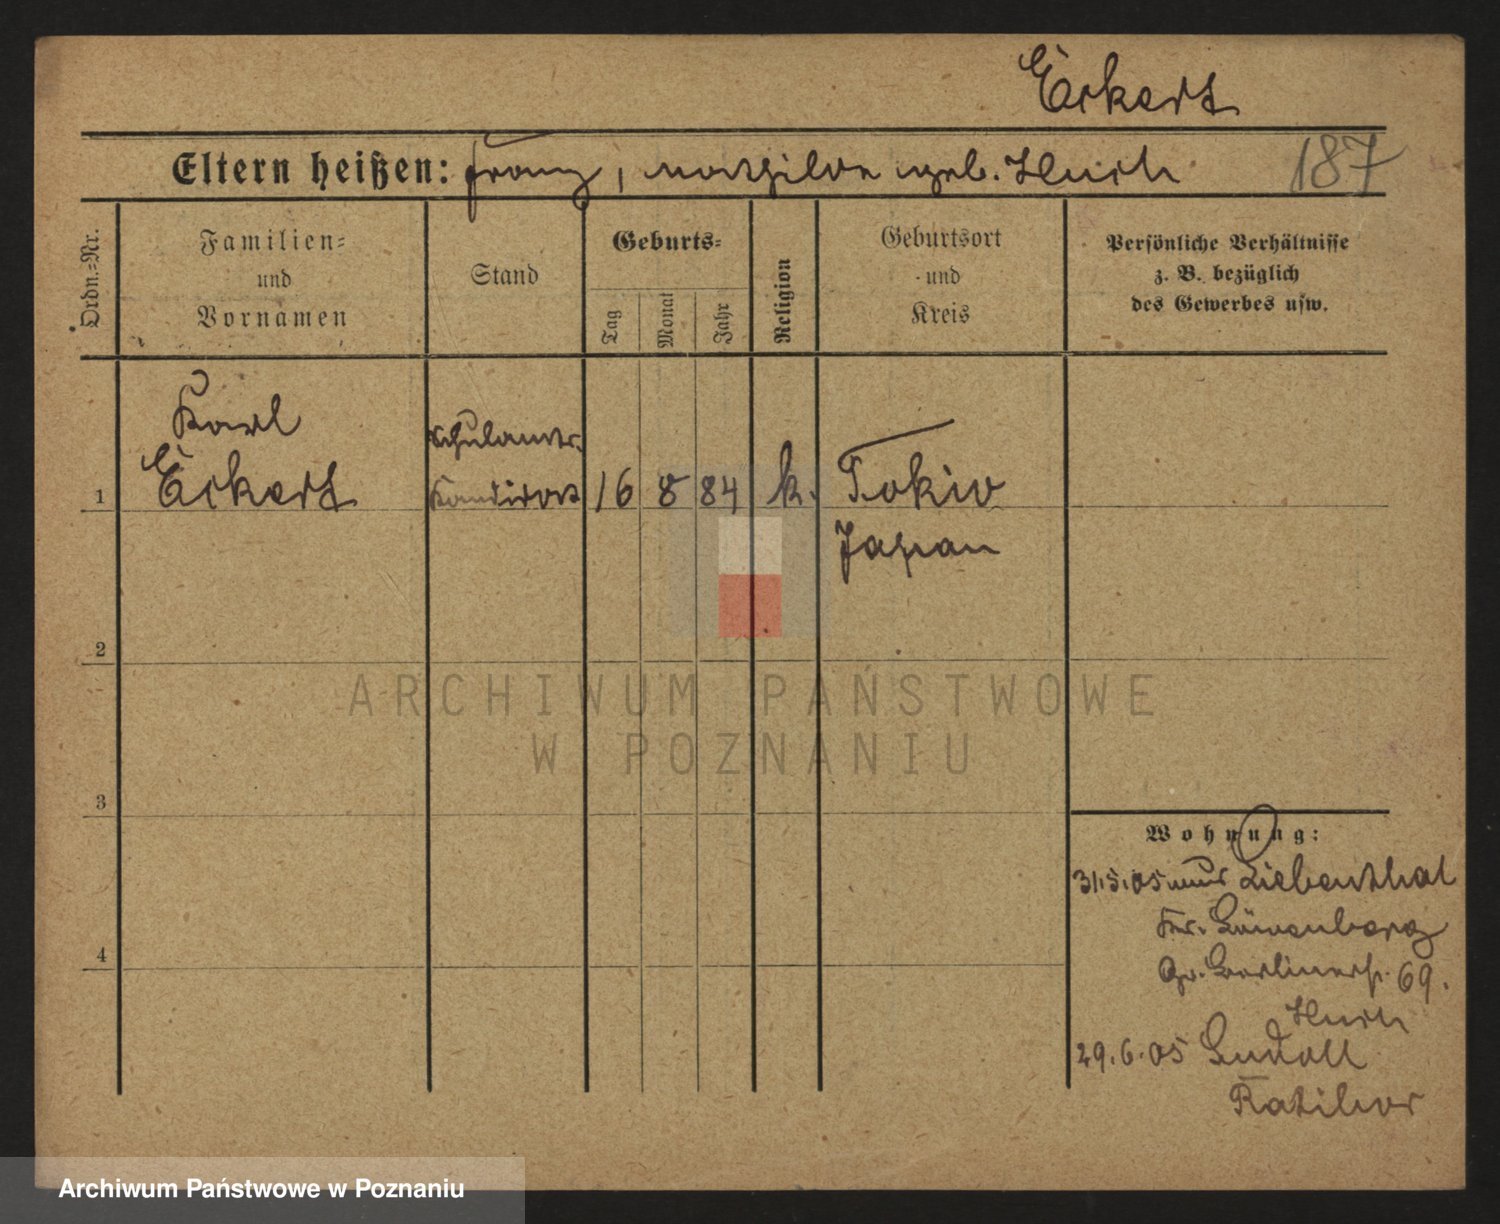 Eckert
Eltern heißen: Franz, Mathilde geb. Huch
187
Ordn.=Nr.
Familien=
und
Vornamen
Stand
Geburts=
Tag
Monat
Jahr
Religion
Geburtsort
und
Kreis
Persönliche Verhältnisse
z. B. bezüglich
des Gewerbes usw.
Karl
Schulamts-
1 Eckert Kandidat 16 8 84 k. Tokio
Japan
2
3
4
Wohnung:
31.5.05 aus Liebenthal
Kr. Löwenberg
Gr. Berlinerstr. 69.
Huch
29.6.05
Ratibor
ARCHIWUM PAŃSTWOWE
W POZNANIU
Archiwum Państwowe w Poznaniu